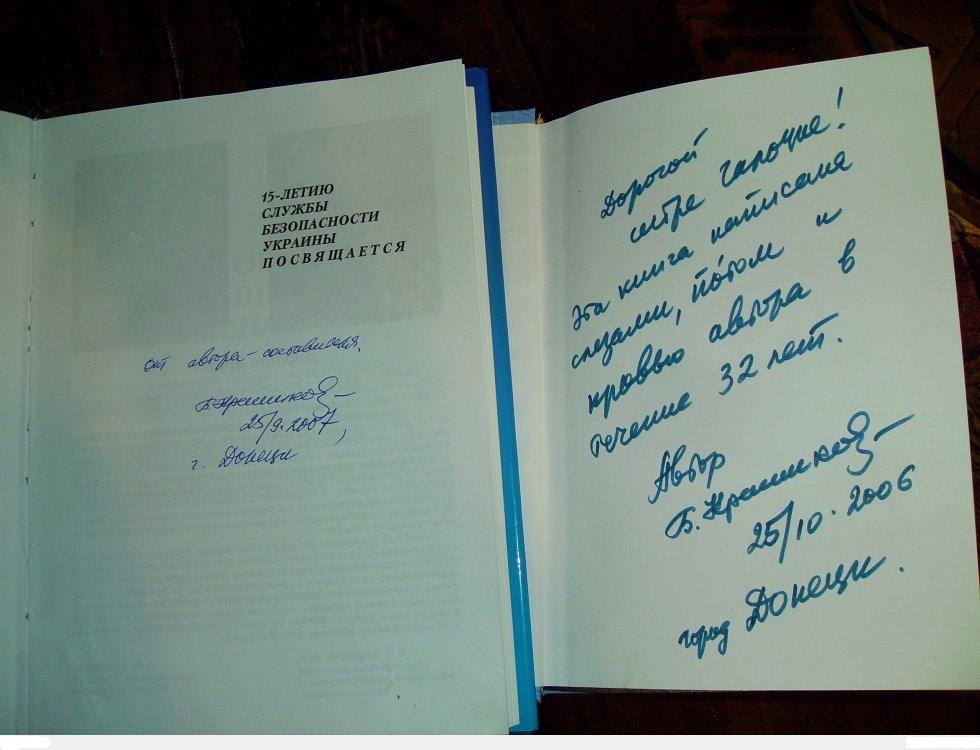 15-ЛЕТИЮ
СЛУЖБЫ
БЕЗОПАСНОСТИ
УКРАИНЫ
ПОСВЯЩАЕТСЯ
от автора-составителя.
25/9.2007,
г. Донецк
Дорогой
сестре Галочке!
Эта книга написана
слезами, пóтом и
кровью автора в
течение 32 лет.
Автор
25/10.2006
город Донецк.